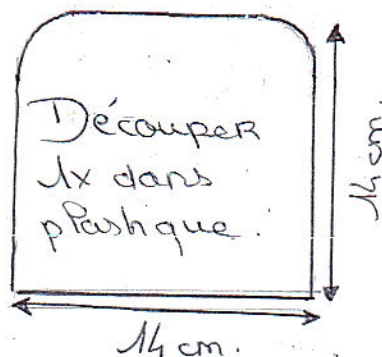 Découper
1x dans
plastique.
14 cm.
14 cm.